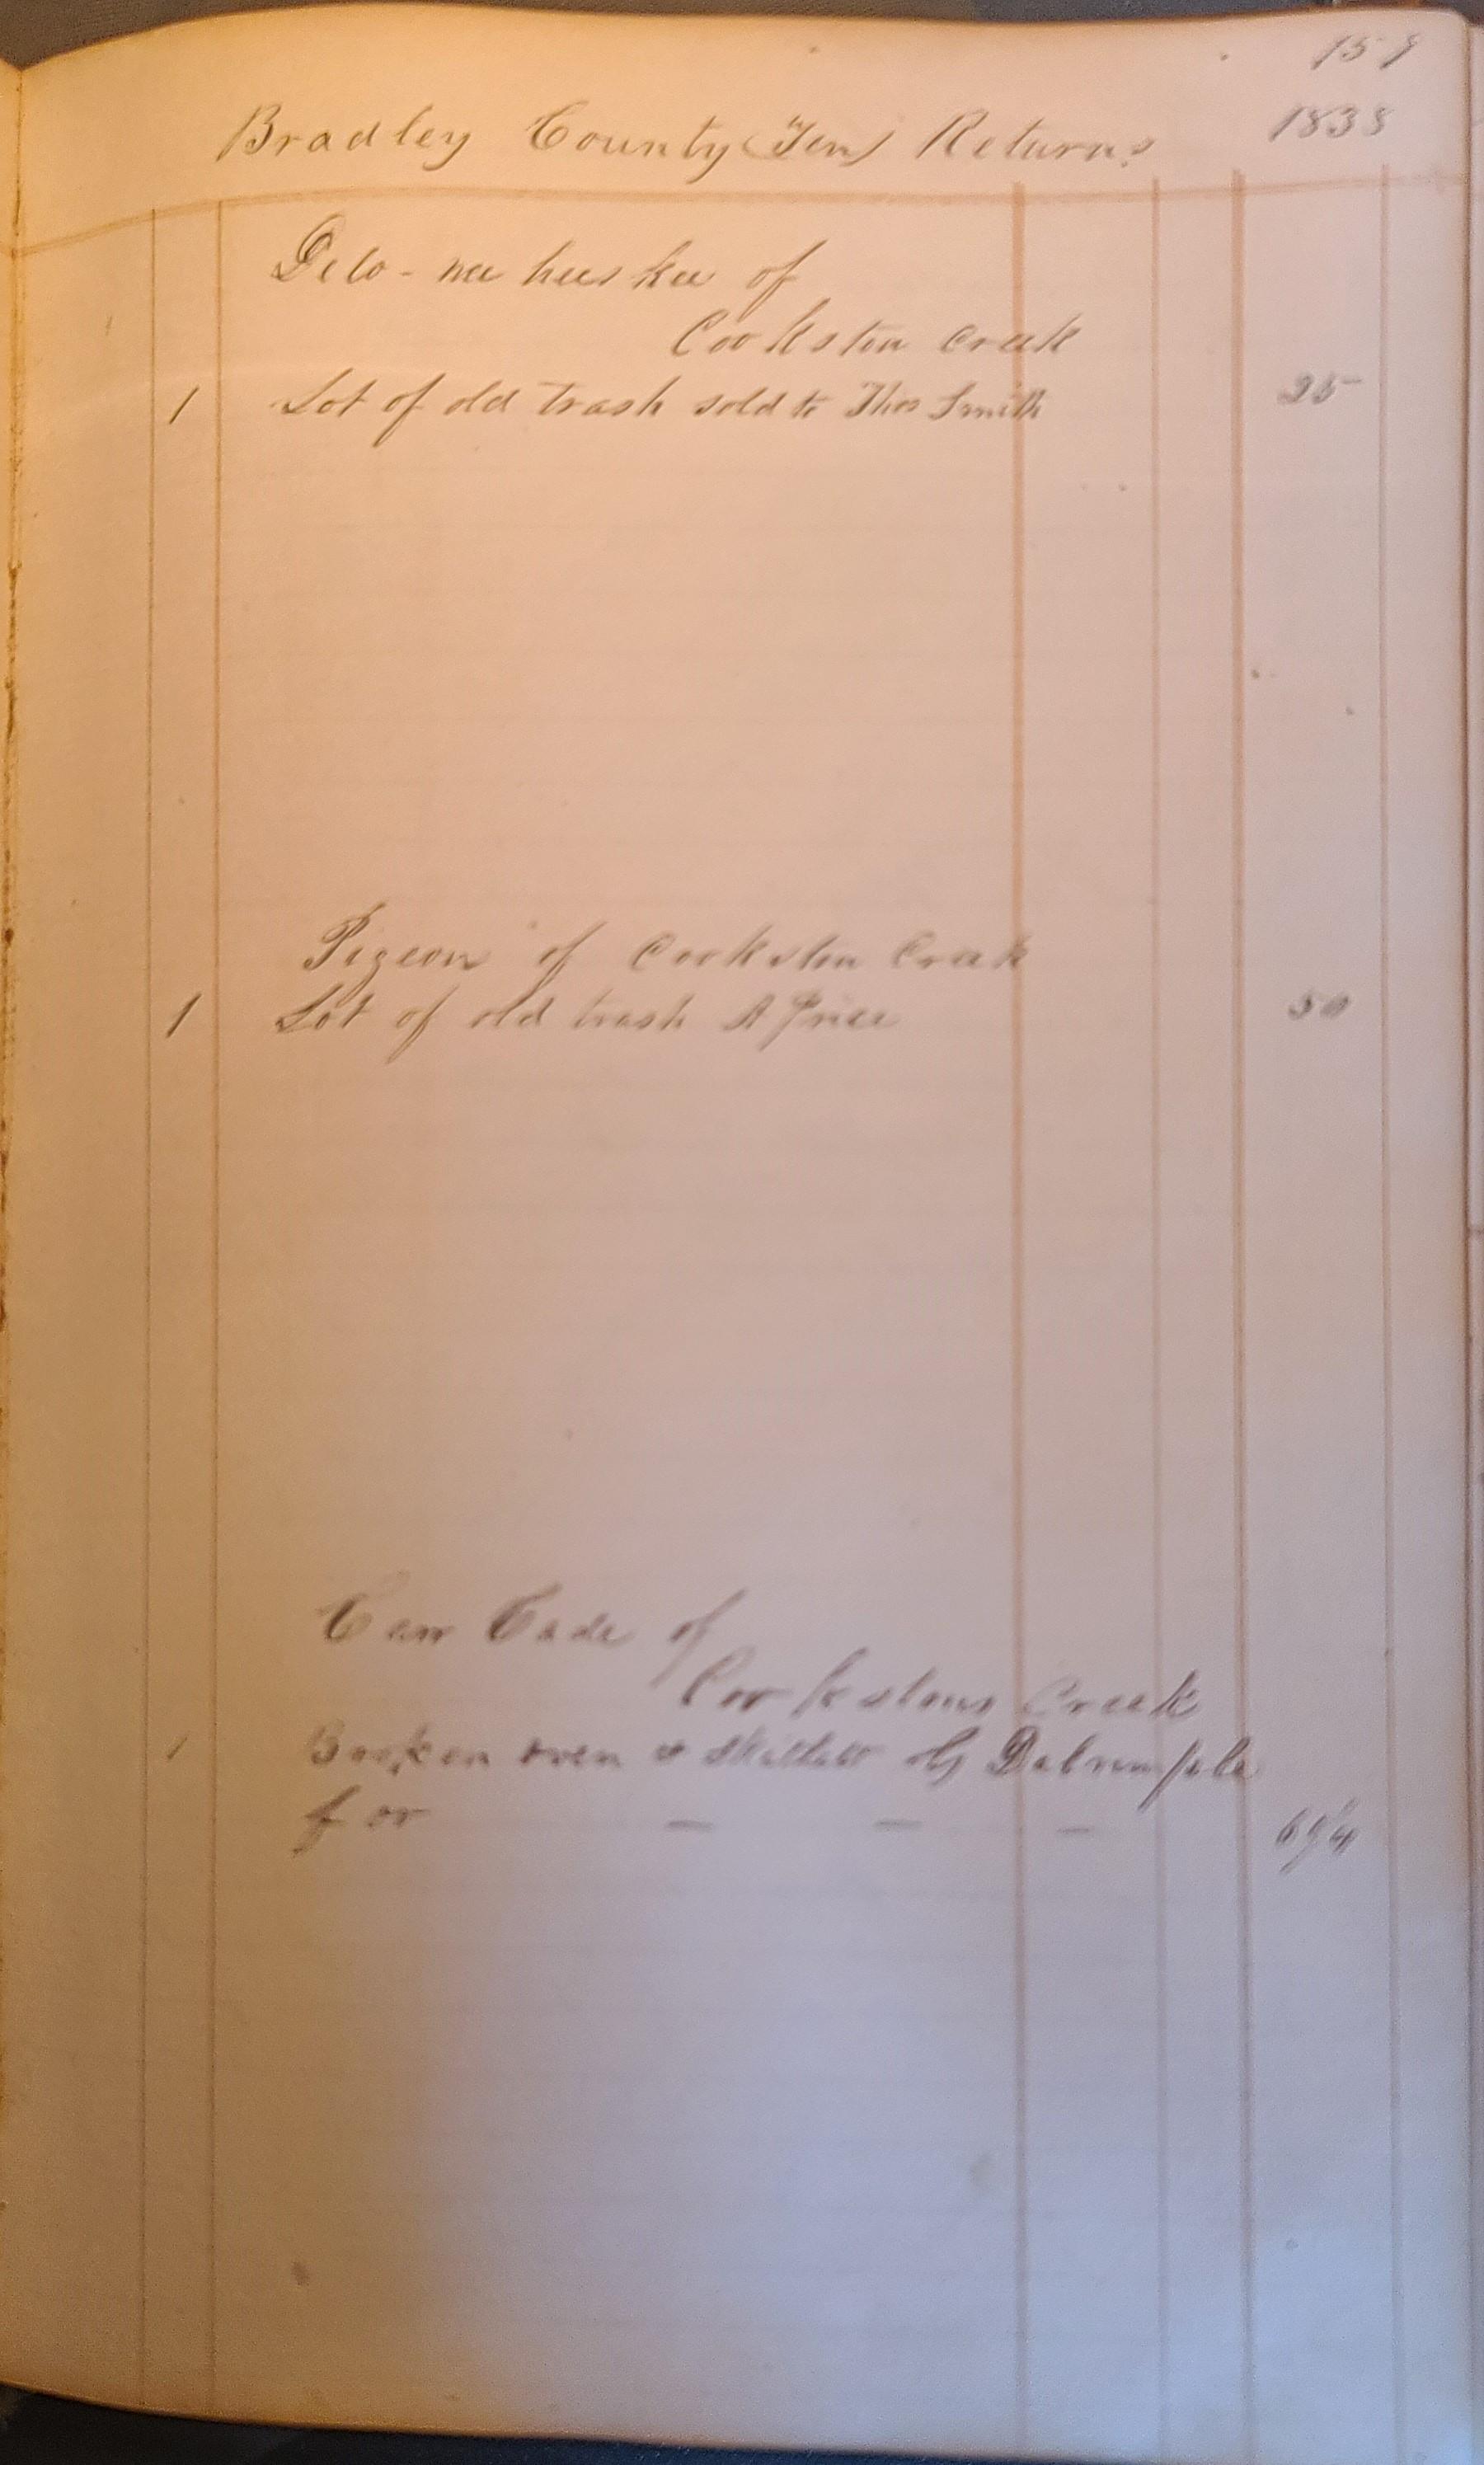 159
Bradley County (Ten) Returns 1838
Delo-nee heeskee of
Cookston Creek
1 Lot of old trash sold to Thos Smith 25
Pigeon of Cookston Creek
1 Lot of old trash A Price 50
Cade of
Cookstons Creek
1 Broken oven & skillett Dalrumple
for — — — 6 1/4